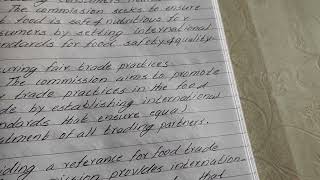 The commission seeks to ensure
food is safe & nutritious for
sumers by setting international
ndards for food safety & quality-
uring fair trade practices
The commission aims to promote
trade practices in the food
de by establishing international
ndards that ensure equal
atment of all trading partners.
iding a referance for food trade
mmission provides internation-
for that